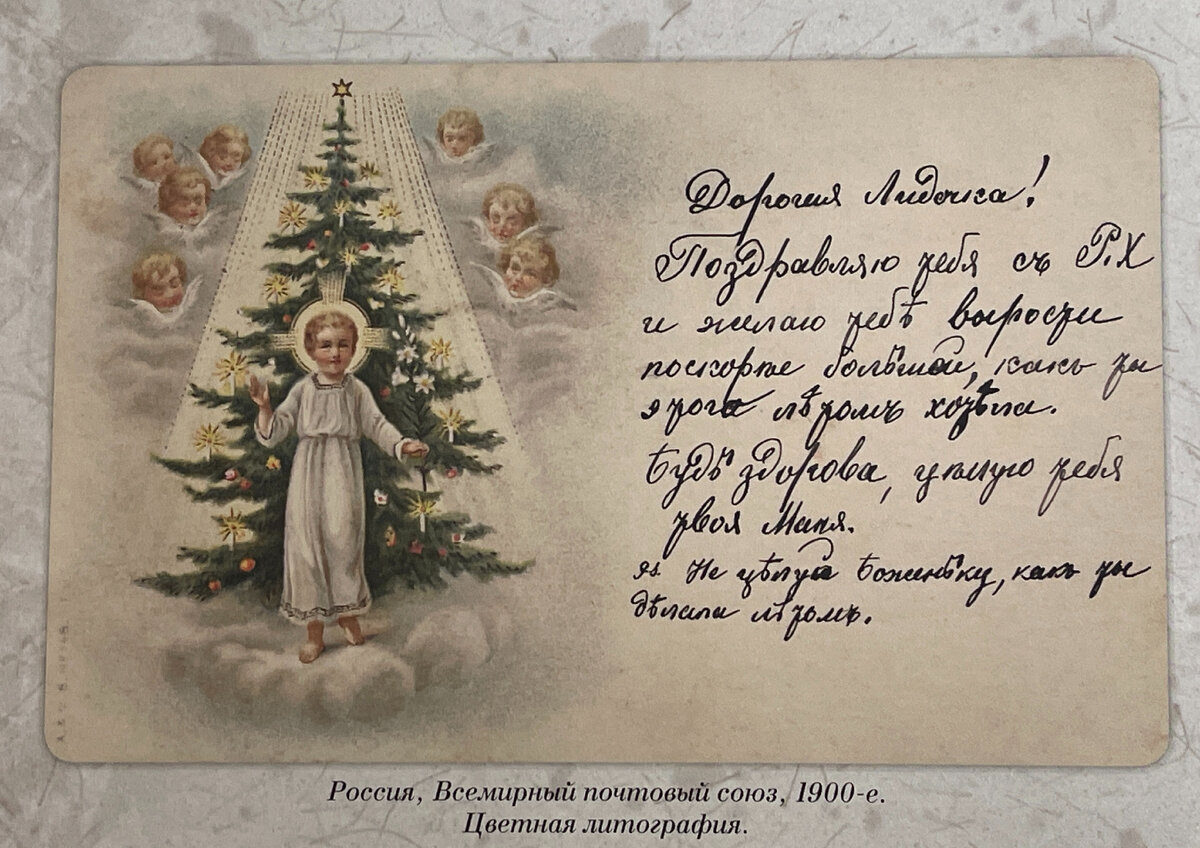 Дорогая Лидочка!
Поздравляю тебя съ Р.Х
и желаю тебѣ вырости
поскорѣе большой, какъ ты
этого лѣтомъ хотѣла.
Будь здорова, цѣлую тебя
твоя Маня.
Не цѣлуй Боженьку, какъ ты
дѣлала лѣтомъ.
Россия, Всемирный почтовый союз, 1900-е.
Цветная литография.